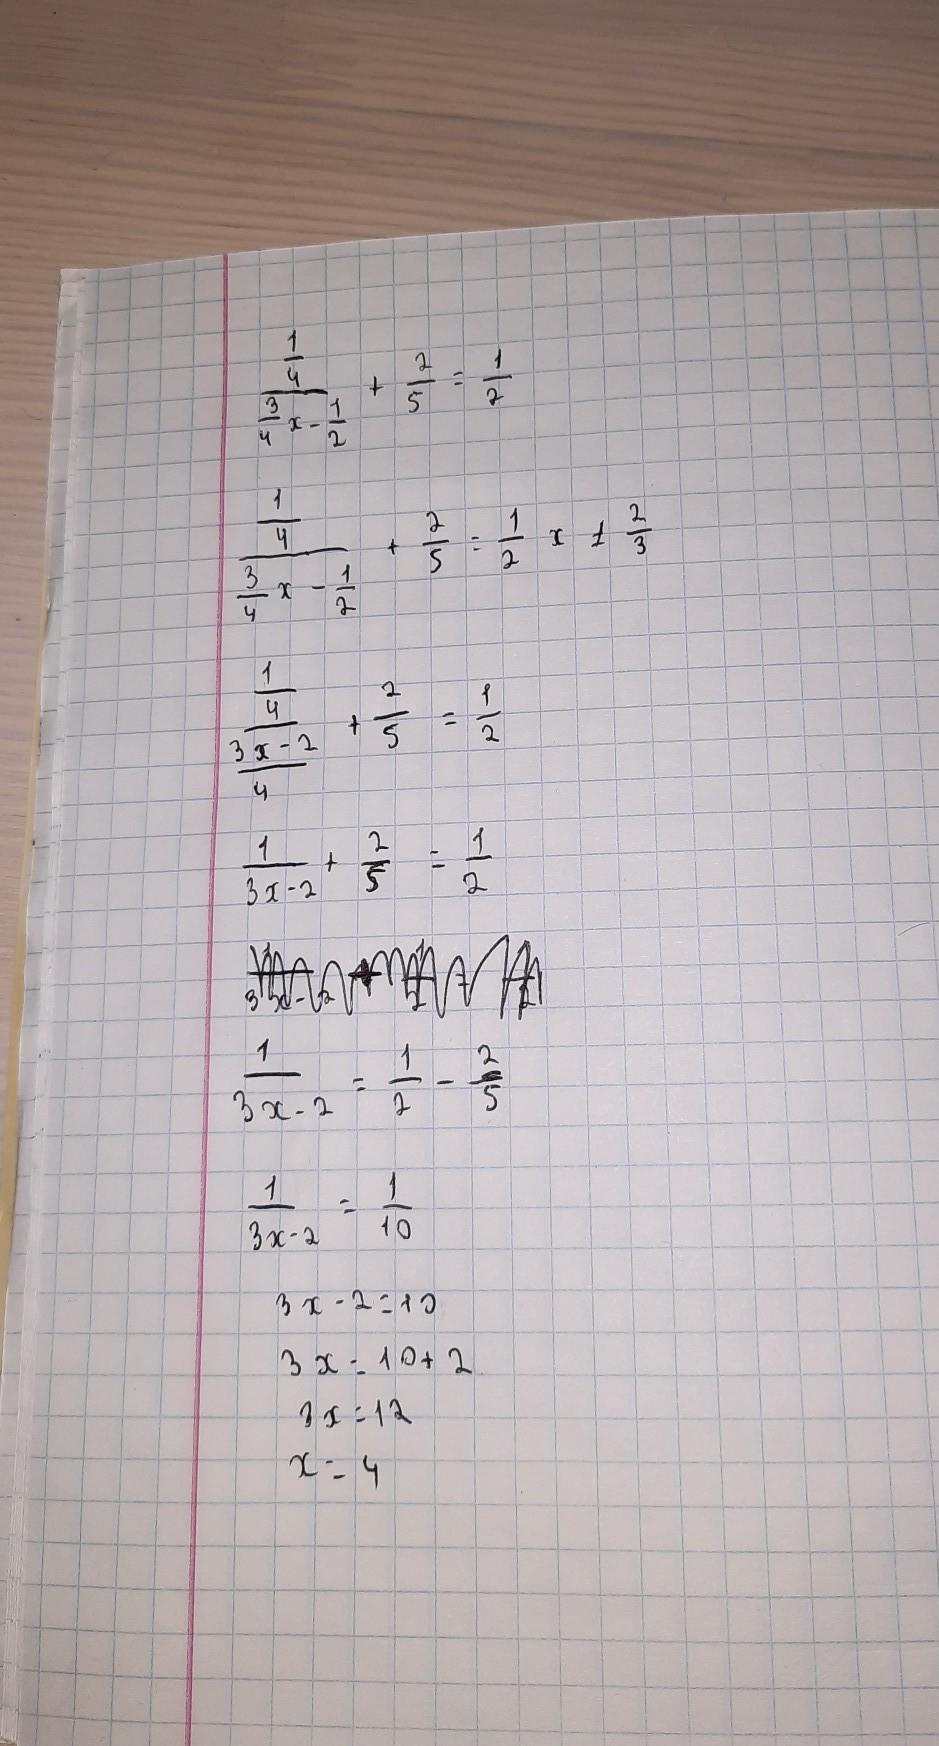 \frac{\frac{1}{4}}{\frac{3}{4}x-\frac{1}{2}} + \frac{2}{5} = \frac{1}{2}
\frac{\frac{1}{4}}{\frac{3}{4}x-\frac{1}{2}} + \frac{2}{5} = \frac{1}{2} x ≠ \frac{2}{3}
\frac{\frac{1}{4}}{\frac{3x-2}{4}} + \frac{2}{5} = \frac{1}{2}
\frac{1}{3x-2} + \frac{2}{5} = \frac{1}{2}
\frac{1}{3x-2} = \frac{1}{2} - \frac{2}{5}
\frac{1}{3x-2} = \frac{1}{10}
3x-2=10
3x=10+2
3x=12
x=4